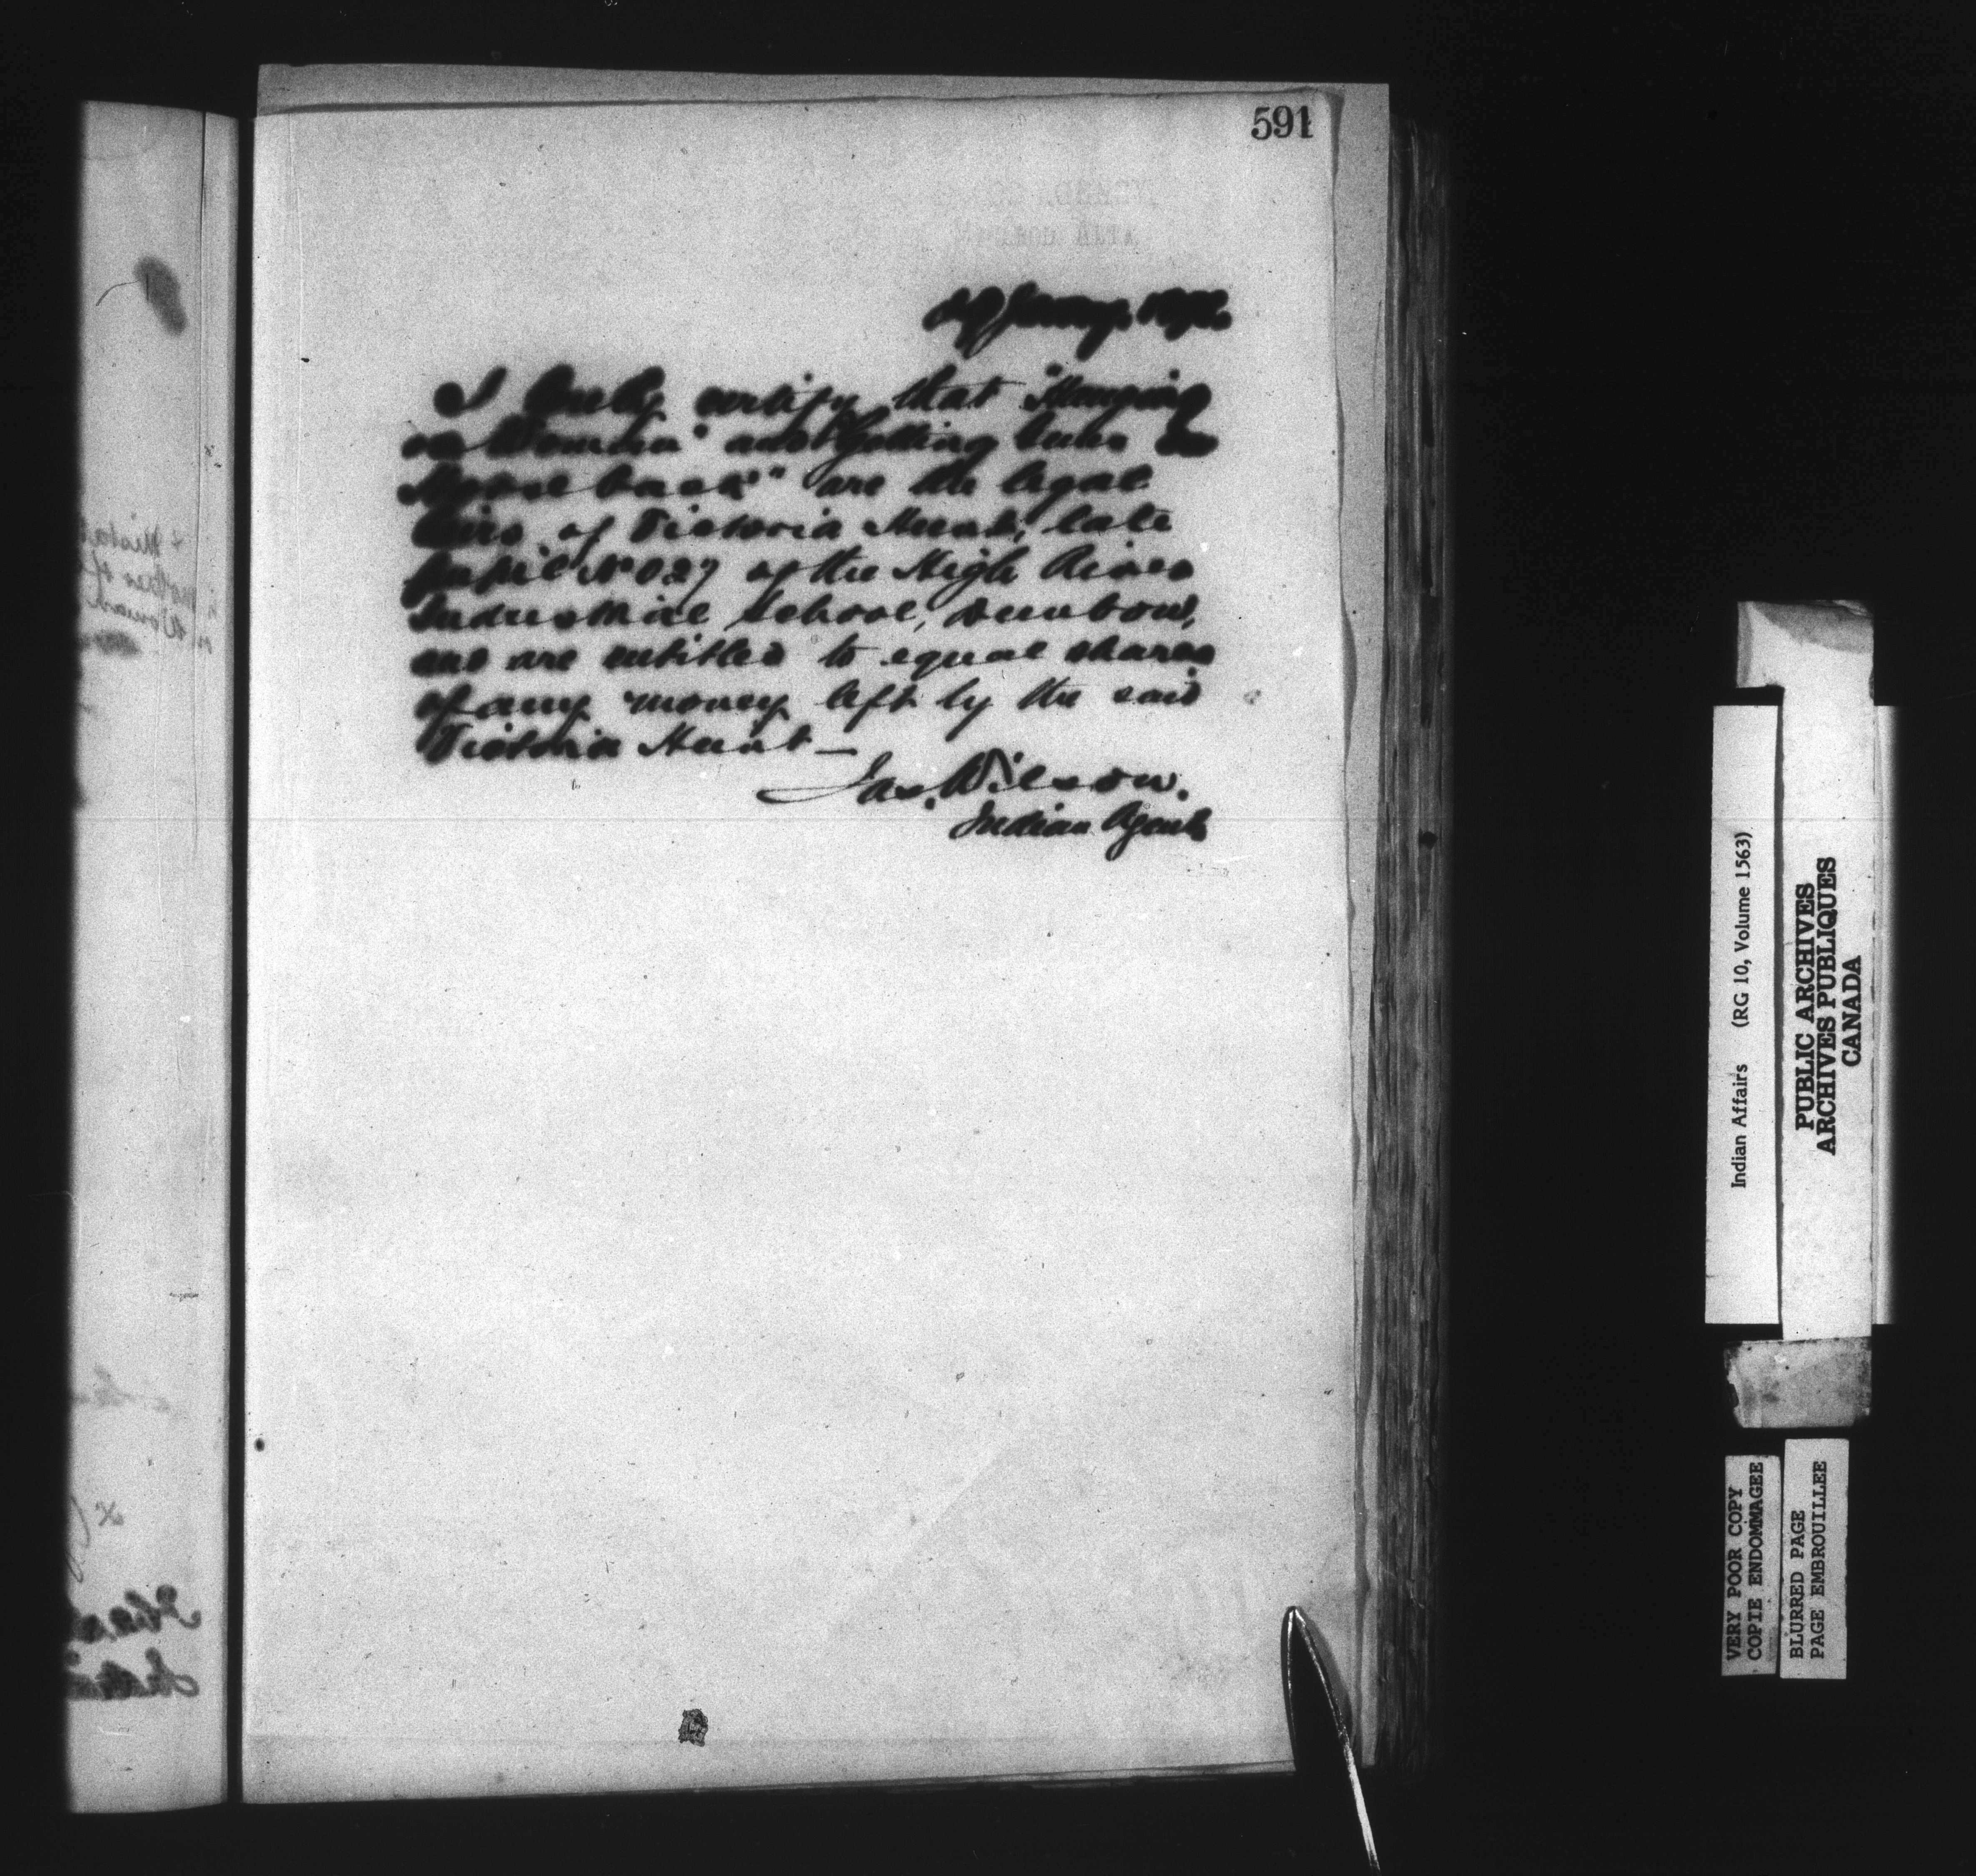 591
29 Jany. 189
I certify that "Hanging
on Woman" and "Getting
Horseback" are the legal
heirs of Victoria Hunt, late
pupil No 027 of the High River
Industrial School, Dunbow,
and are entitled to equal shares
of any money left by the said
Victoria Hunt —
Jas. Wilson.
Indian Agent
Indian Affairs (RG 10, Volume 1563)
PUBLIC ARCHIVES
ARCHIVES PUBLIQUES
CANADA
VERY POOR COPY
COPIE ENDOMMAGEE
BLURRED PAGE
PAGE EMBROUILLEE